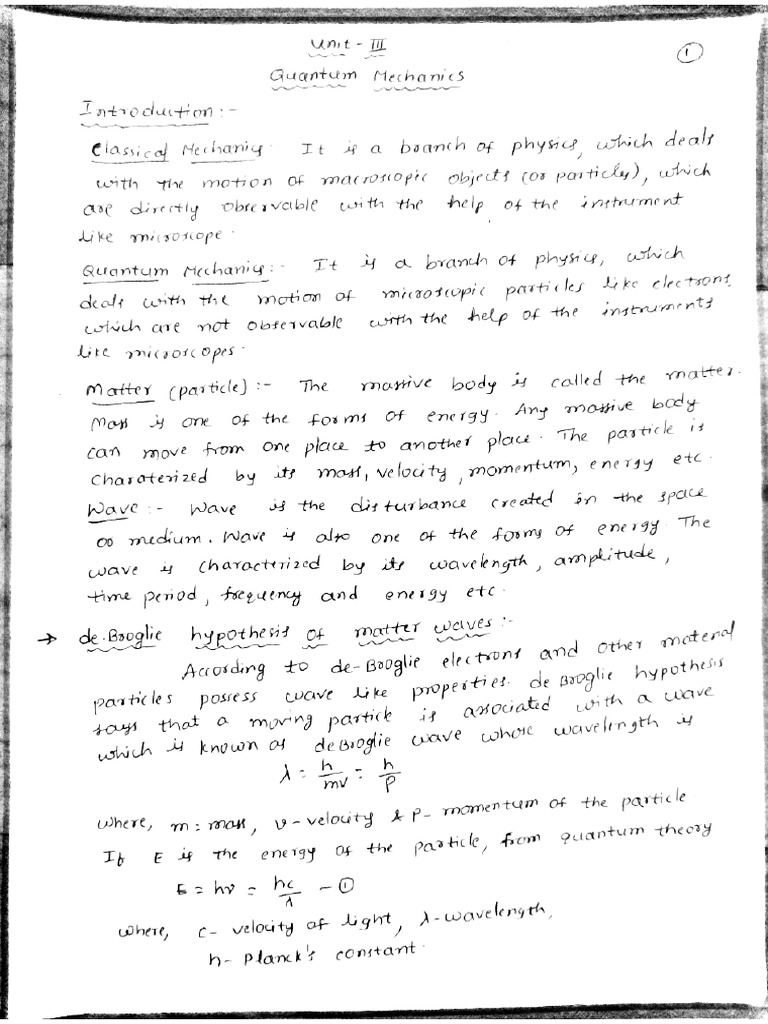 Unit - III
①
Quantum Mechanics
Introduction :-
Classical Mechanics It is a branch of physics, which deals
with the motion of macroscopic objects (or particles), which
are directly observable with the help of the instrument
like microscope.
Quantum Mechanics :- It is a branch of physics, which
deals with the motion of microscopic particles like electrons,
which are not observable with the help of the instruments
like microscopes.
Matter (particle) :- The massive body is called the matter.
Mass is one of the forms of energy. Any massive body
can move from one place to another place. The particle is
charaterized by its mass, velocity, momentum, energy etc.
Wave :- Wave is the disturbance created in the space
or medium. Wave is also one of the forms of energy. The
wave is characterized by its wavelength, amplitude,
time period, frequency and energy etc.
→ de-Broglie hypothesis of matter waves :-
According to de-Broglie electrons and other material
particles possess wave like properties. de Broglie hypothesis
says that a moving particle is associated with a wave
which is known as deBroglie wave whose wavelength is
λ = h/mv = h/p
where, m = mass, v - velocity & p - momentum of the particle
If E is the energy of the particle, from quantum theory
E = hν = hc/λ - ①
where, c - velocity of light, λ - wavelength,
h - Planck's constant.